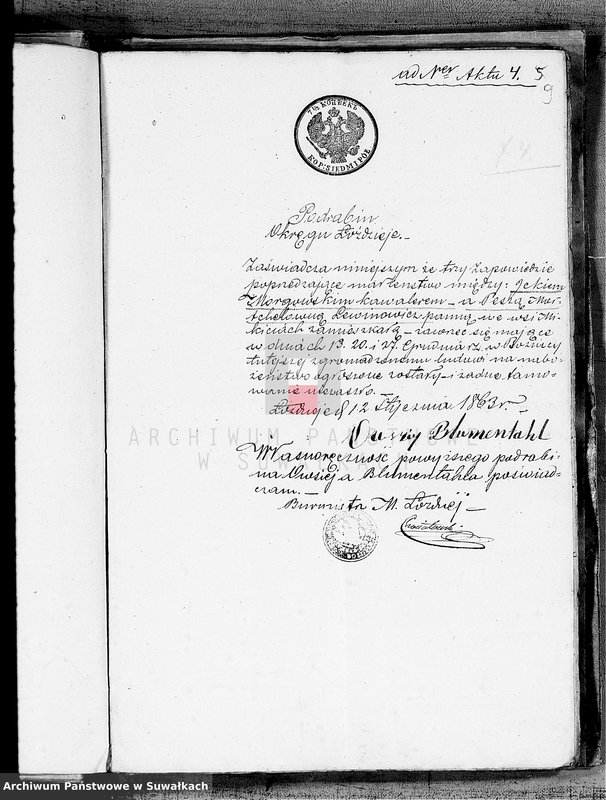 ad Nrer Aktu 4. 5
9
7½ KOPEEK
KOP: SIEDM I PÓŁ
Podrabin
Okręgu Łóździeje. _
Zaświadcza niniejszym że trzy zapowiedzie
poprzedzające małżeństwo między: Ickiem
Zmorgowskim kawalerem – a Peszą Mor-
tchelowną Lewinowicz panną, we wsi Mi-
kiciach zamieszkałą – zawrzeć się mające
w dniach 13. 20. i 27. Grudnia r.z. w Bożnicy
tutejszej zgromadzonemu ludowi na nabo-
żeństwo ogłoszone zostały – i żadne tamo-
wanie nie zaszło. _
Łóździeje d. 12 Stycznia 1863 r. _
Owsiej Blumentahl
Własnoręczność powyższego podrabi-
na Owsieja Blumentahla poświad-
czam. _
Burmistrz M. Łóździej _
ARCHIWUM PAŃSTWOWE
W SUWAŁKACH
Archiwum Państwowe w Suwałkach